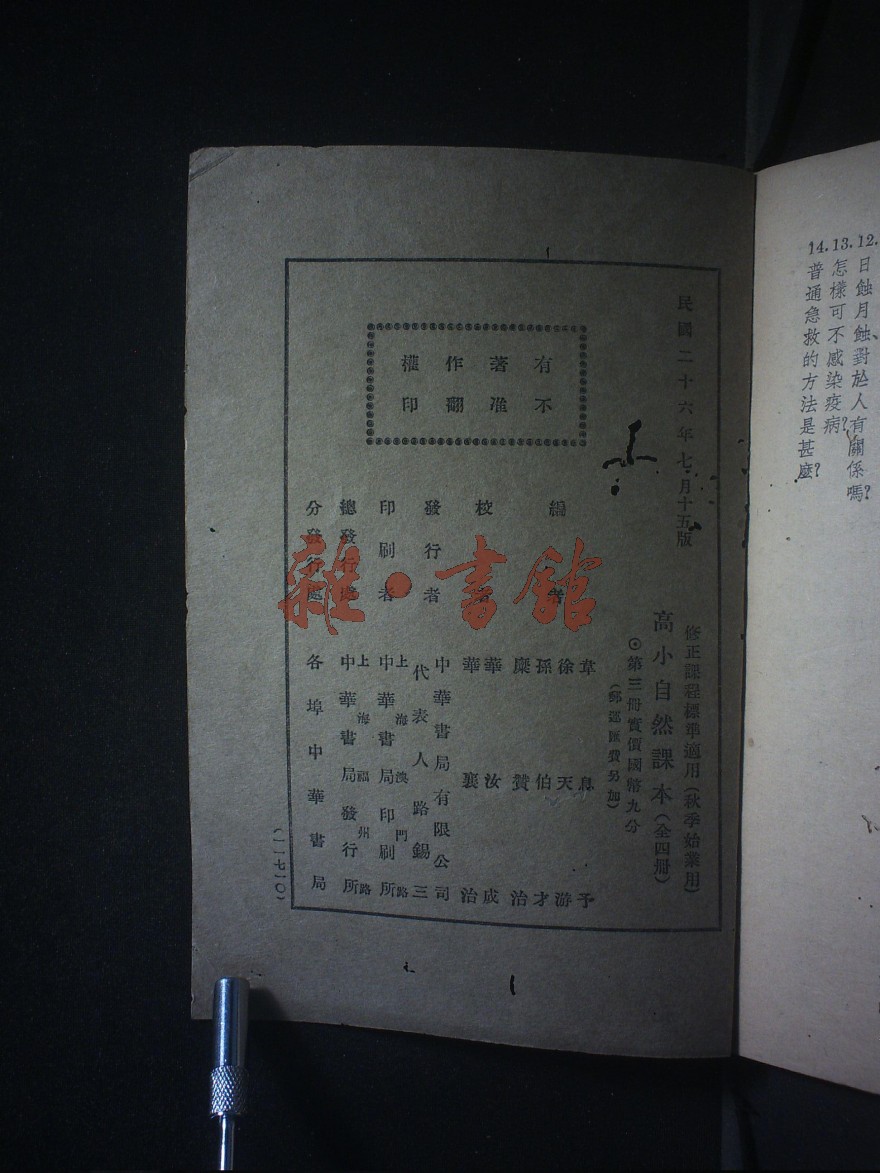 12.日蝕月蝕、對於人有關係嗎?
13.怎樣可不感染疫病?
14.普通急救的方法是甚麼?
民國二十六年七月十五版
修正課程標準適用(秋季始業用)
高小自然課本(全四冊)
⊙第三冊實價國幣九分
(郵運匯費另加)
有著作權
不准翻印
編者
韋息予
徐天游
孫伯才
糜贊治
校者
華汝成
華襄治
發行者
中華書局有限公司
代表人路錫三
印刷者
上海澳門路
中華書局印刷所
總發行處
上海福州路
中華書局發行所
分發行處
各埠中華書局
(一一七一〇)
雜·書館